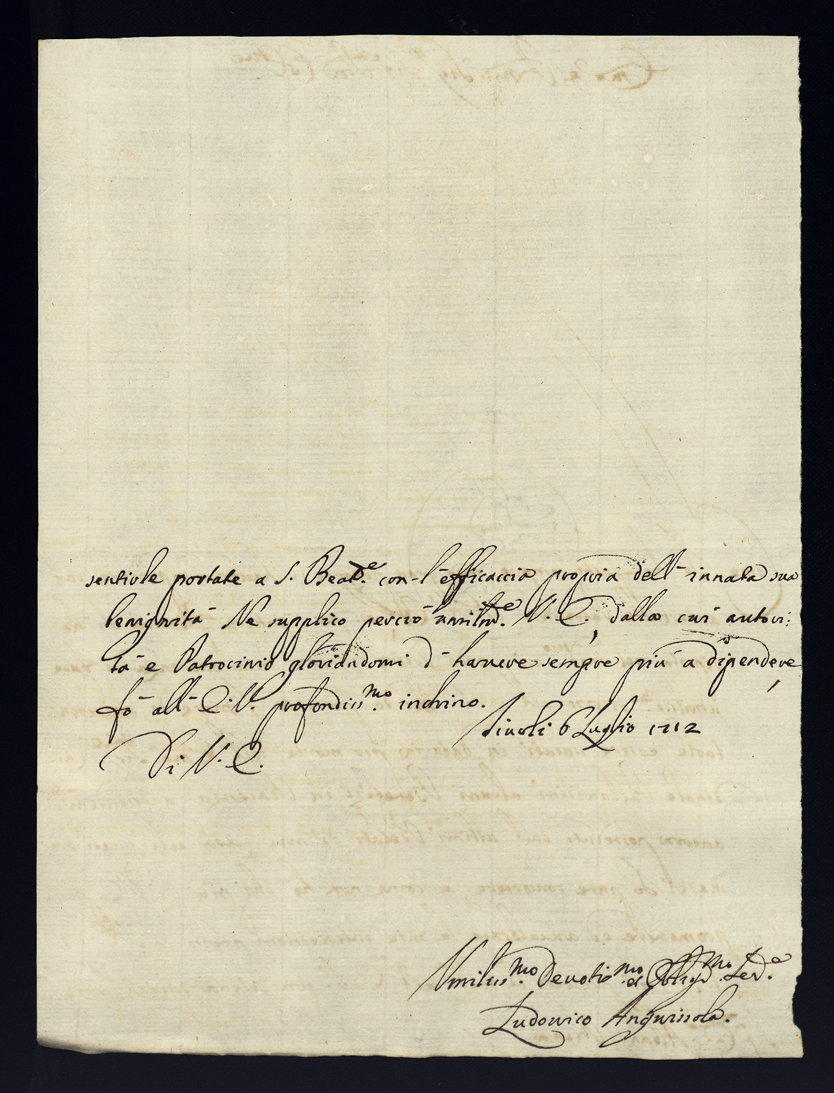 sentirle portate a S. Beatne. con l'efficaccia propria dell' innata sua
benignità Ne supplico perciò umilmte. V. E., dalla cui autori:
tà e Patrocinio gloriandomi d' havere sempre più a dipendere,
fò all' E. V. profondissmo inchino.
Tivoli 6 Luglio 1712
Di V. E.
Umilissmo. Devotismo. et Obligmo. Serve.
Ludovico Anguissola.